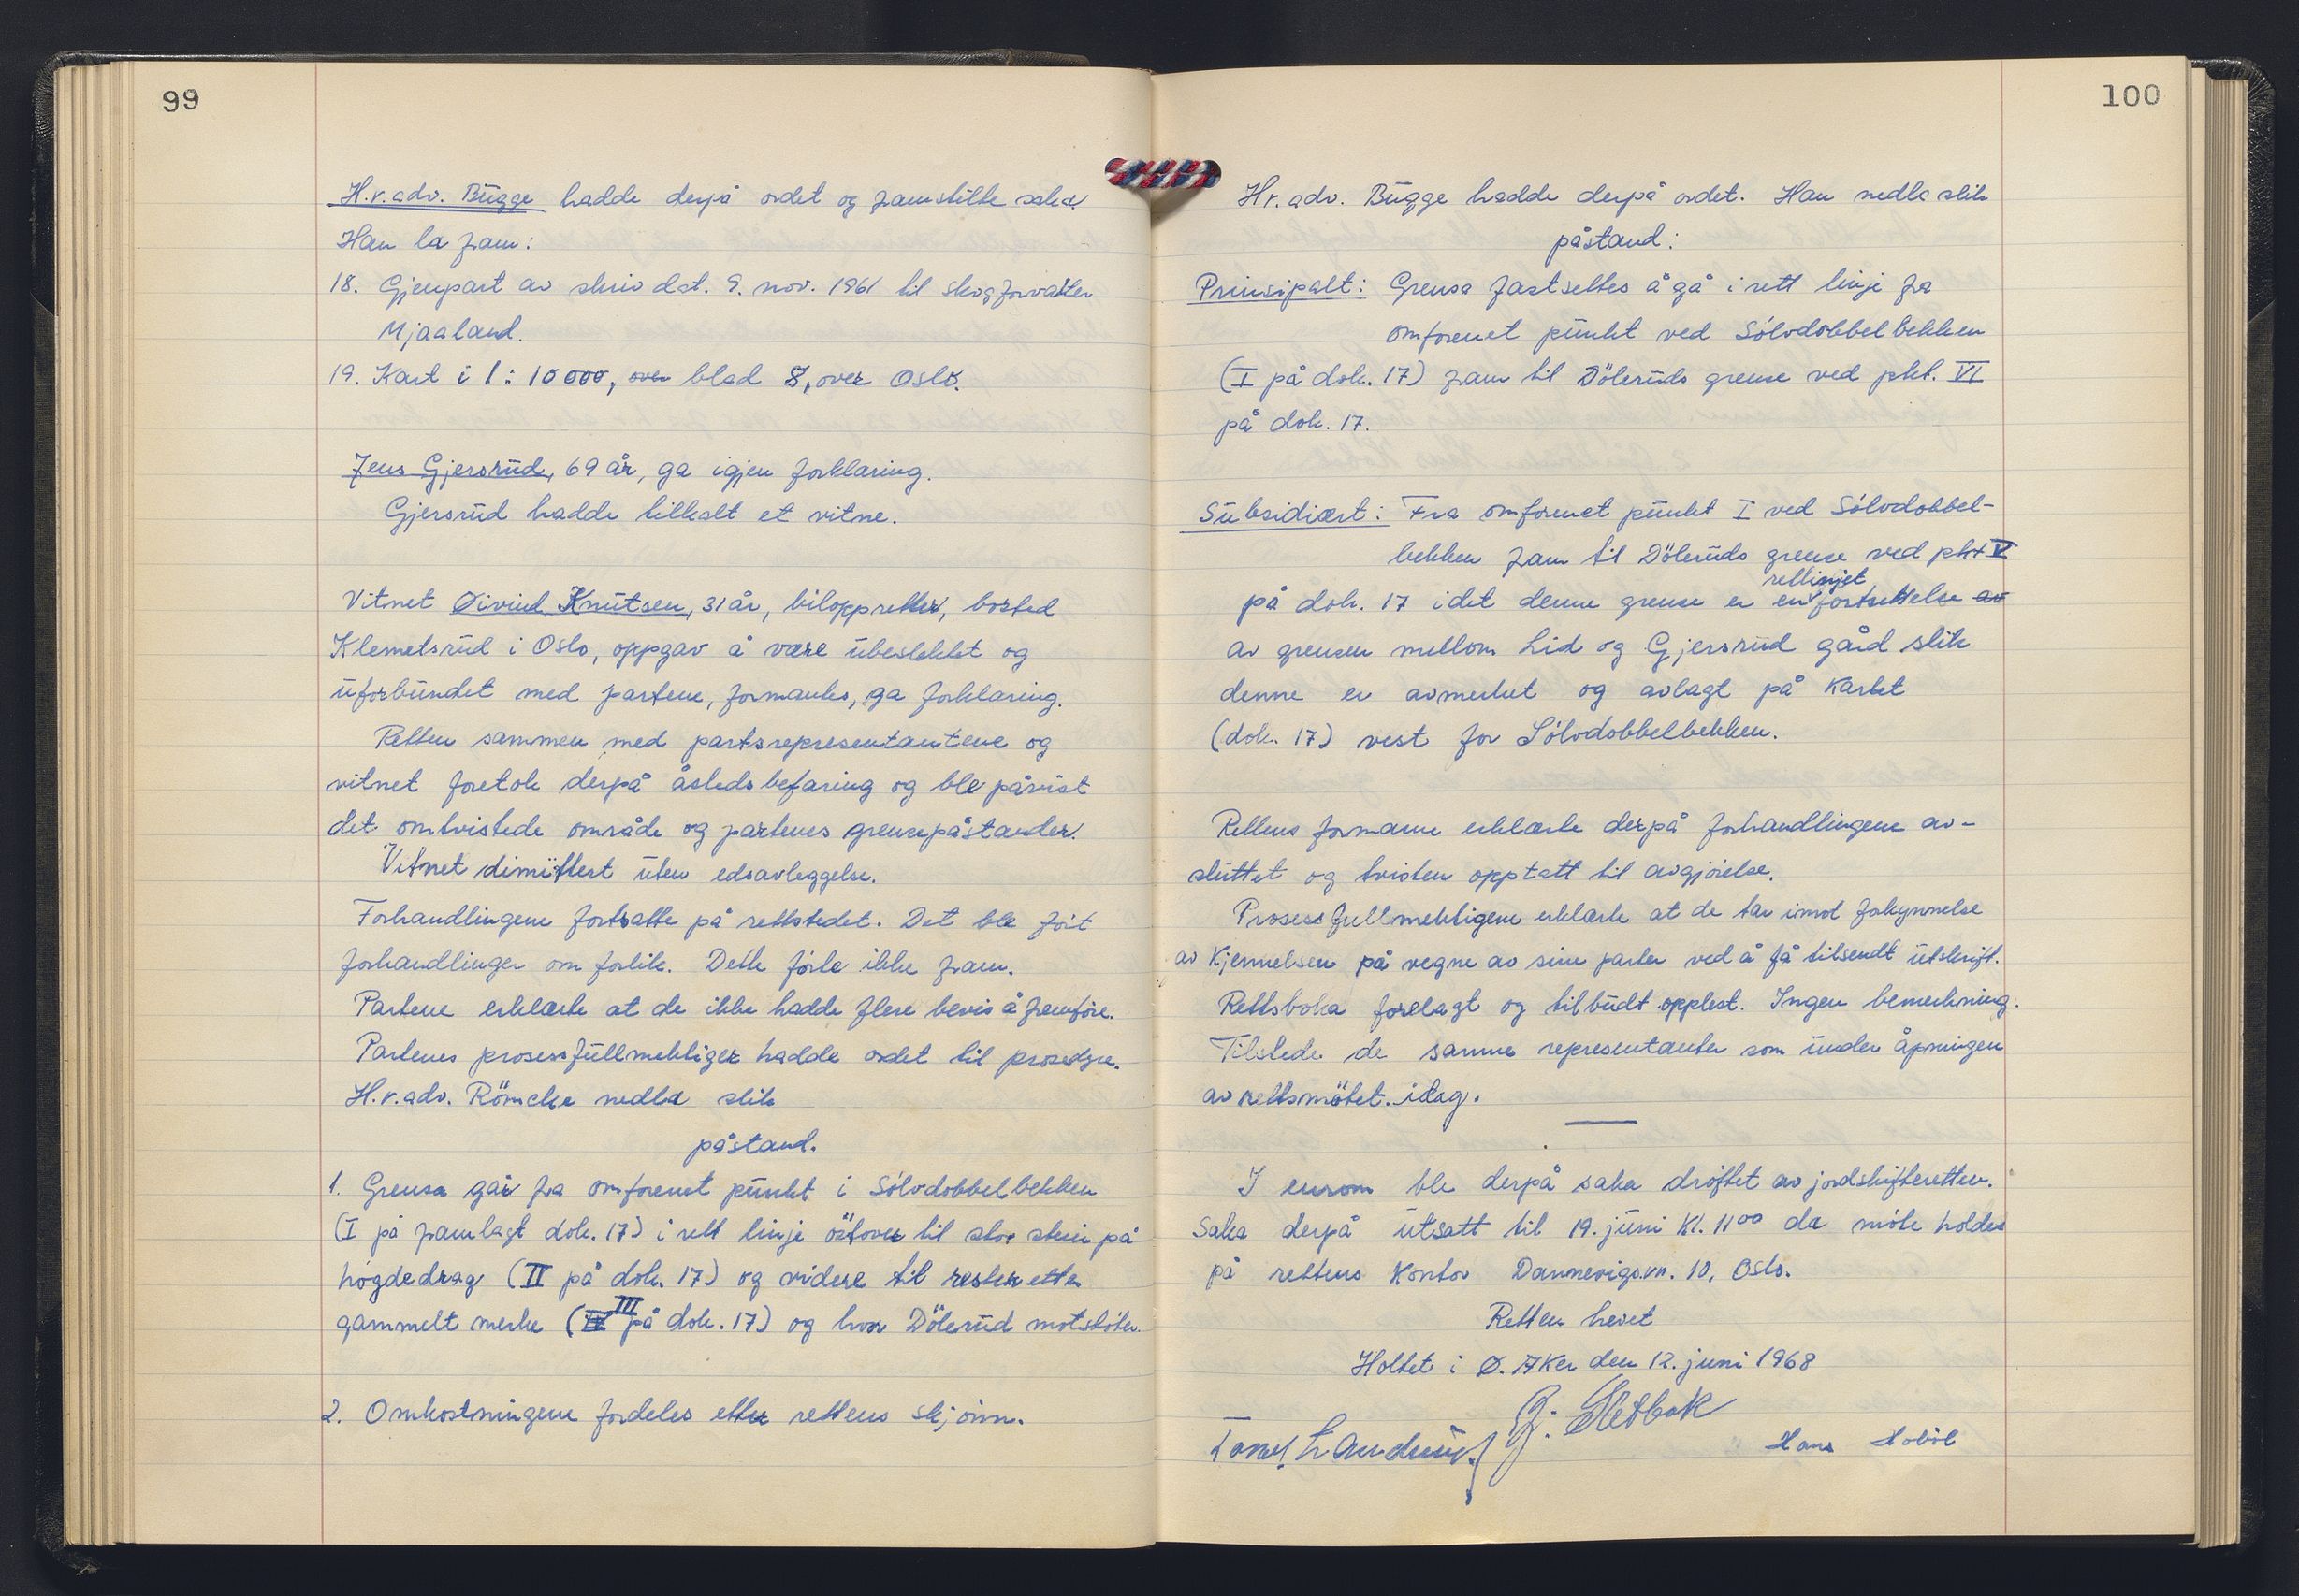 99
H.r.adv. Bugge hadde derpå ordet og framstilte saka.
Han la fram:
18. Gjenpart av skriv dat. 9. nov. 1961 til skogforvalter
Mjaaland.
19. Kart i 1:10000, over blad 8, over Oslo.
Jens Gjersrud, 69 år, ga igjen forklaring.
Gjersrud hadde tilkalt et vitne.
Vitnet Øivind Knutsen, 31 år, biloppretter, bosted
Klemetsrud i Oslo, oppgav å være ubeslektet og
uforbundet med partene, formantes, ga forklaring.
Retten sammen med partsrepresentantene og
vitnet foretok derpå åstedsbefaring og ble påvist
det omtvistede område og partenes grensepåstander.
Vitnet dimittert uten edsavleggelse.
Forhandlingene fortsatte på rettstedet. Det ble ført
forhandlinger om forlik. Dette førte ikke fram.
Partene erklærte at de ikke hadde flere bevis å fremføre.
Partenes prosessfullmektiger hadde ordet til prosedyre.
H.r.adv. Römcke nedla slik
påstand.
1. Grensa går fra omforenet punkt i Sølvdobbelbekken
(I på framlagt dok. 17) i rett linje østover til stor stein på
høgdedrag (II på dok. 17) og videre til rester etter
gammelt merke (III på dok. 17) og hvor Dölerud motstöter.
2. Omkostningene fordeles etter rettens skjønn.
100
Hr. adv. Bugge hadde derpå ordet. Han nedla slik
påstand:
Prinsipalt: Grensa fastsettes å gå i rett linje fra
omforenet punkt ved Sølvdobbelbekken
(I på dok. 17) fram til Döleruds grense ved pkt. VI
på dok. 17.
Subsidiært: Fra omforenet punkt I ved Sølvdobbel-
bekken fram til Döleruds grense ved pkt V
rettlinjet
på dok. 17 idet denne grense er en fortsettelse av
av grensen mellom Lid og Gjersrud gård slik
denne er avmerket og avlagt på kartet
(dok. 17) vest for Sølvdobbelbekken.
Rettens formann erklærte derpå forhandlingene av-
sluttet og tvisten opptatt til avgjørelse.
Prosessfullmektigene erklærte at de tar imot forkynnelse
av kjennelsen på vegne av sine parter ved å få tilsendt utskrift.
Rettsboka forelagt og tilbudt opplest. Ingen bemerkning.
Tilstede de samme representanter som under åpningen
av rettsmötet idag.
I enrom ble derpå saka drøftet av jordskifteretten.
Saka derpå utsatt til 19. juni kl. 11⁰⁰ da møte holdes
på rettens kontor Dannevigsvn. 10, Oslo.
Retten hevet
Holtet i Ø. Aker den 12. juni 1968
Hans